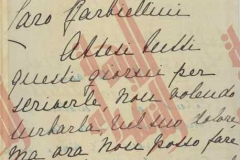 Caro Barbiellini
Attesi tutti
questi giorni per
scriverle, non volendo
turbarla, nel suo dolore,
ma ora non posso fare